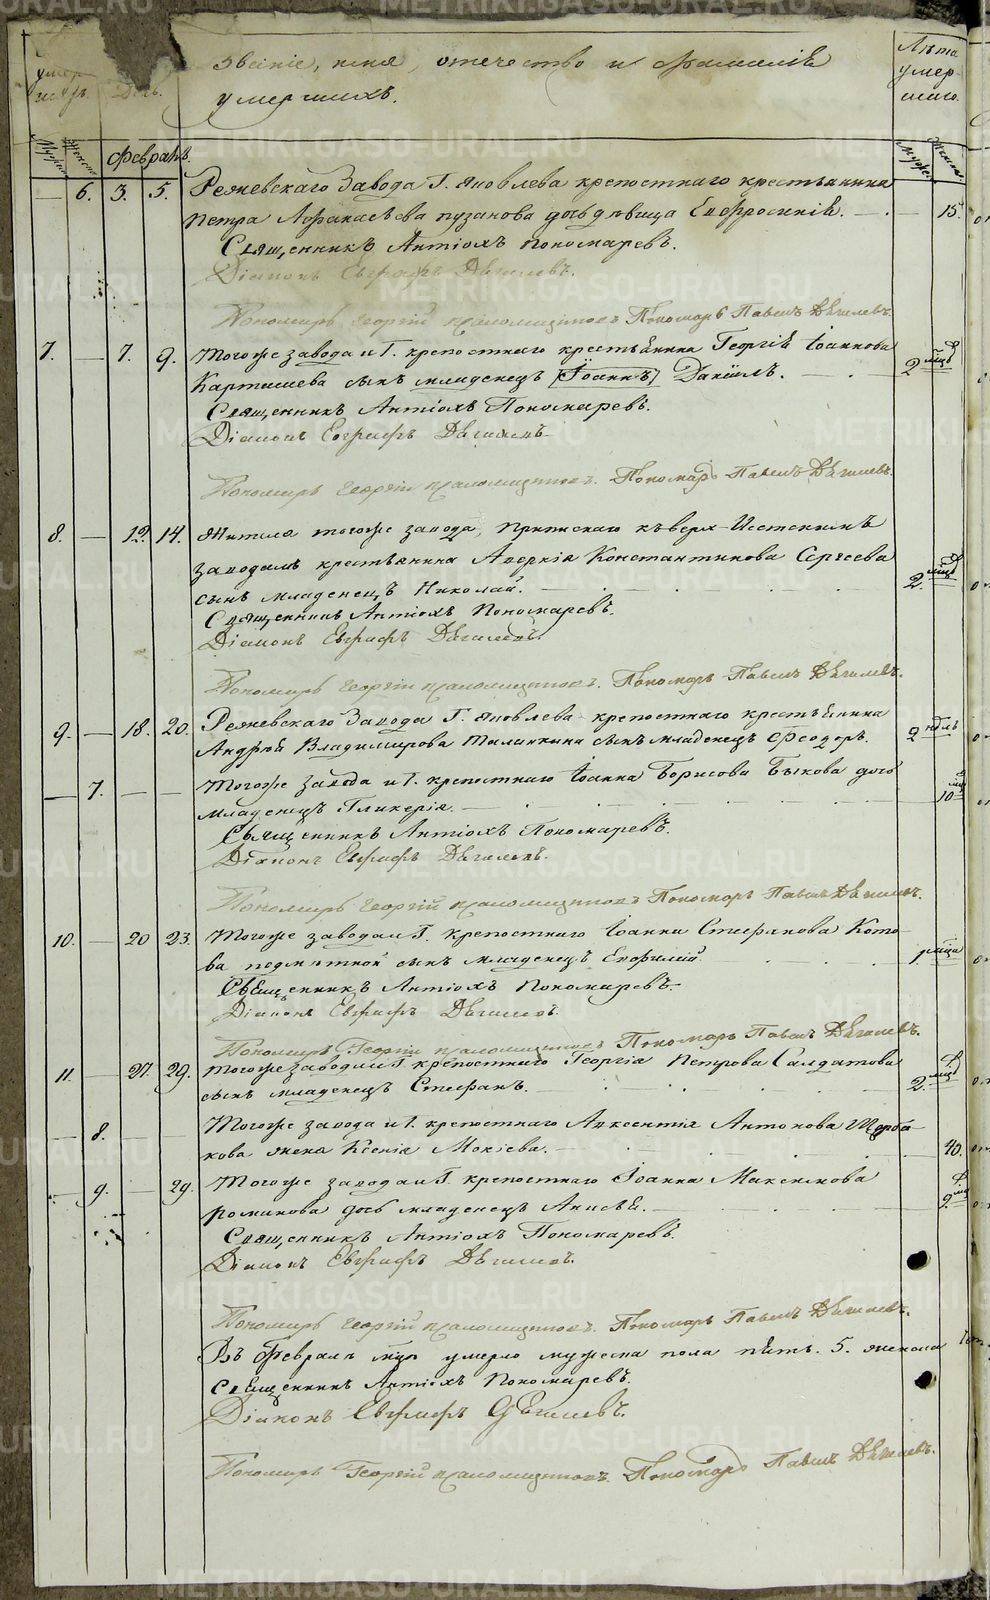 Званіе, имя, отечество и фамилія
умершихъ.
Лѣта
умер-
шаго.
Февраль.
6. 3. 5. Режевскаго Завода Г. Яковлева крепостнаго крестьянина
Петра Афанасьева Пузанова дочь дѣвица Евфросинія. 15.
Священникъ Антіохъ Пономаревъ.
Діаконъ Евграфъ Дѣгилевъ.
Пономарь Георгій Пономарь Павелъ Дѣгилевъ.
7. — 7. 9. Тогоже завода и Г. крепостнаго крестьянина Георгія Іоаннова
Карташева сынъ младенецъ [Іоаннъ] Даніилъ. 2 мцъ
Священникъ Антіохъ Пономаревъ.
Діаконъ Евграфъ Дѣгилевъ
Пономарь Георгій Пономарь Павелъ Дѣгилевъ.
8. — 12. 14. Жителя тогоже завода, приписнаго къ Верхъ-Исетскимъ
заводамъ крестьянина Аверкія Константинова Сергеева
сынъ младенецъ Николай. 2. мцъ
Священникъ Антіохъ Пономаревъ.
Діаконъ Евграфъ Дѣгилевъ.
Пономарь Георгій Пономарь Павелъ Дѣгилевъ.
9. — 18. 20. Режевскаго Завода Г. Яковлева крепостнаго крестьянина
Андрей Владимирова сынъ младенецъ Феодоръ. 2 н
— 7. — — Тогоже завода и Г. крепостнаго Іоанна Борисова Быкова дочь
младенецъ Гликерія. 10 мц
Священникъ Антіохъ Пономаревъ.
Діаконъ Евграфъ Дѣгилевъ.
Пономарь Георгій Пономарь Павелъ Дѣгилевъ.
10. — 20 23. Тогоже завода и Г. крепостнаго Іоанна Стефанова Кото-
ва сынъ младенецъ Евфимій
Священникъ Антіохъ Пономаревъ.
Діаконъ Евграфъ Дѣгилевъ.
Пономарь Георгій Пономарь Павелъ Дѣгилевъ.
11. 27. 29. Тогоже завода и Г. крепостнаго Георгія Петрова Салдатова
сынъ младенецъ Стефанъ. 2. мцъ
— 8. Тогоже завода и Г. крепостнаго Авксентія Антонова
кова жена Ксенія Мокіева. 40.
— 9. — 29. Тогоже завода и Г. крепостнаго Іоанна Максимова
Роминова дочь младенецъ 9. мц
Священникъ Антіохъ Пономаревъ.
Діаконъ Евграфъ Дѣгилевъ.
Пономарь Георгій Пономарь Павелъ Дѣгилевъ.
Въ Февралѣ мцѣ умерло мужеска пола пять. 5. женска
Священникъ Антіохъ Пономаревъ.
Діаконъ Евграфъ Дѣгилевъ.
Пономарь Георгій Пономарь Павелъ Дѣгилевъ.
METRIKI.GASO-URAL.RU